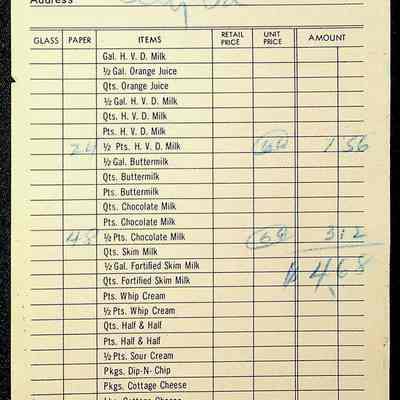 Address
GLASS PAPER ITEMS RETAIL PRICE UNIT PRICE AMOUNT
Gal. H. V. D. Milk
½ Gal. Orange Juice
Qts. Orange Juice
½ Gal. H. V. D. Milk
Qts. H. V. D. Milk
Pts. H. V. D. Milk
24 ½ Pts. H. V. D. Milk 1 56
½ Gal. Buttermilk
Qts. Buttermilk
Pts. Buttermilk
Qts. Chocolate Milk
Pts. Chocolate Milk
48 ½ Pts. Chocolate Milk 312
Qts. Skim Milk
½ Gal. Fortified Skim Milk $ 4 68
Qts. Fortified Skim Milk
Pts. Whip Cream
½ Pts. Whip Cream
Qts. Half & Half
Pts. Half & Half
½ Pts. Sour Cream
Pkgs. Dip-N-Chip
Pkgs. Cottage Cheese
Cottage Cheese